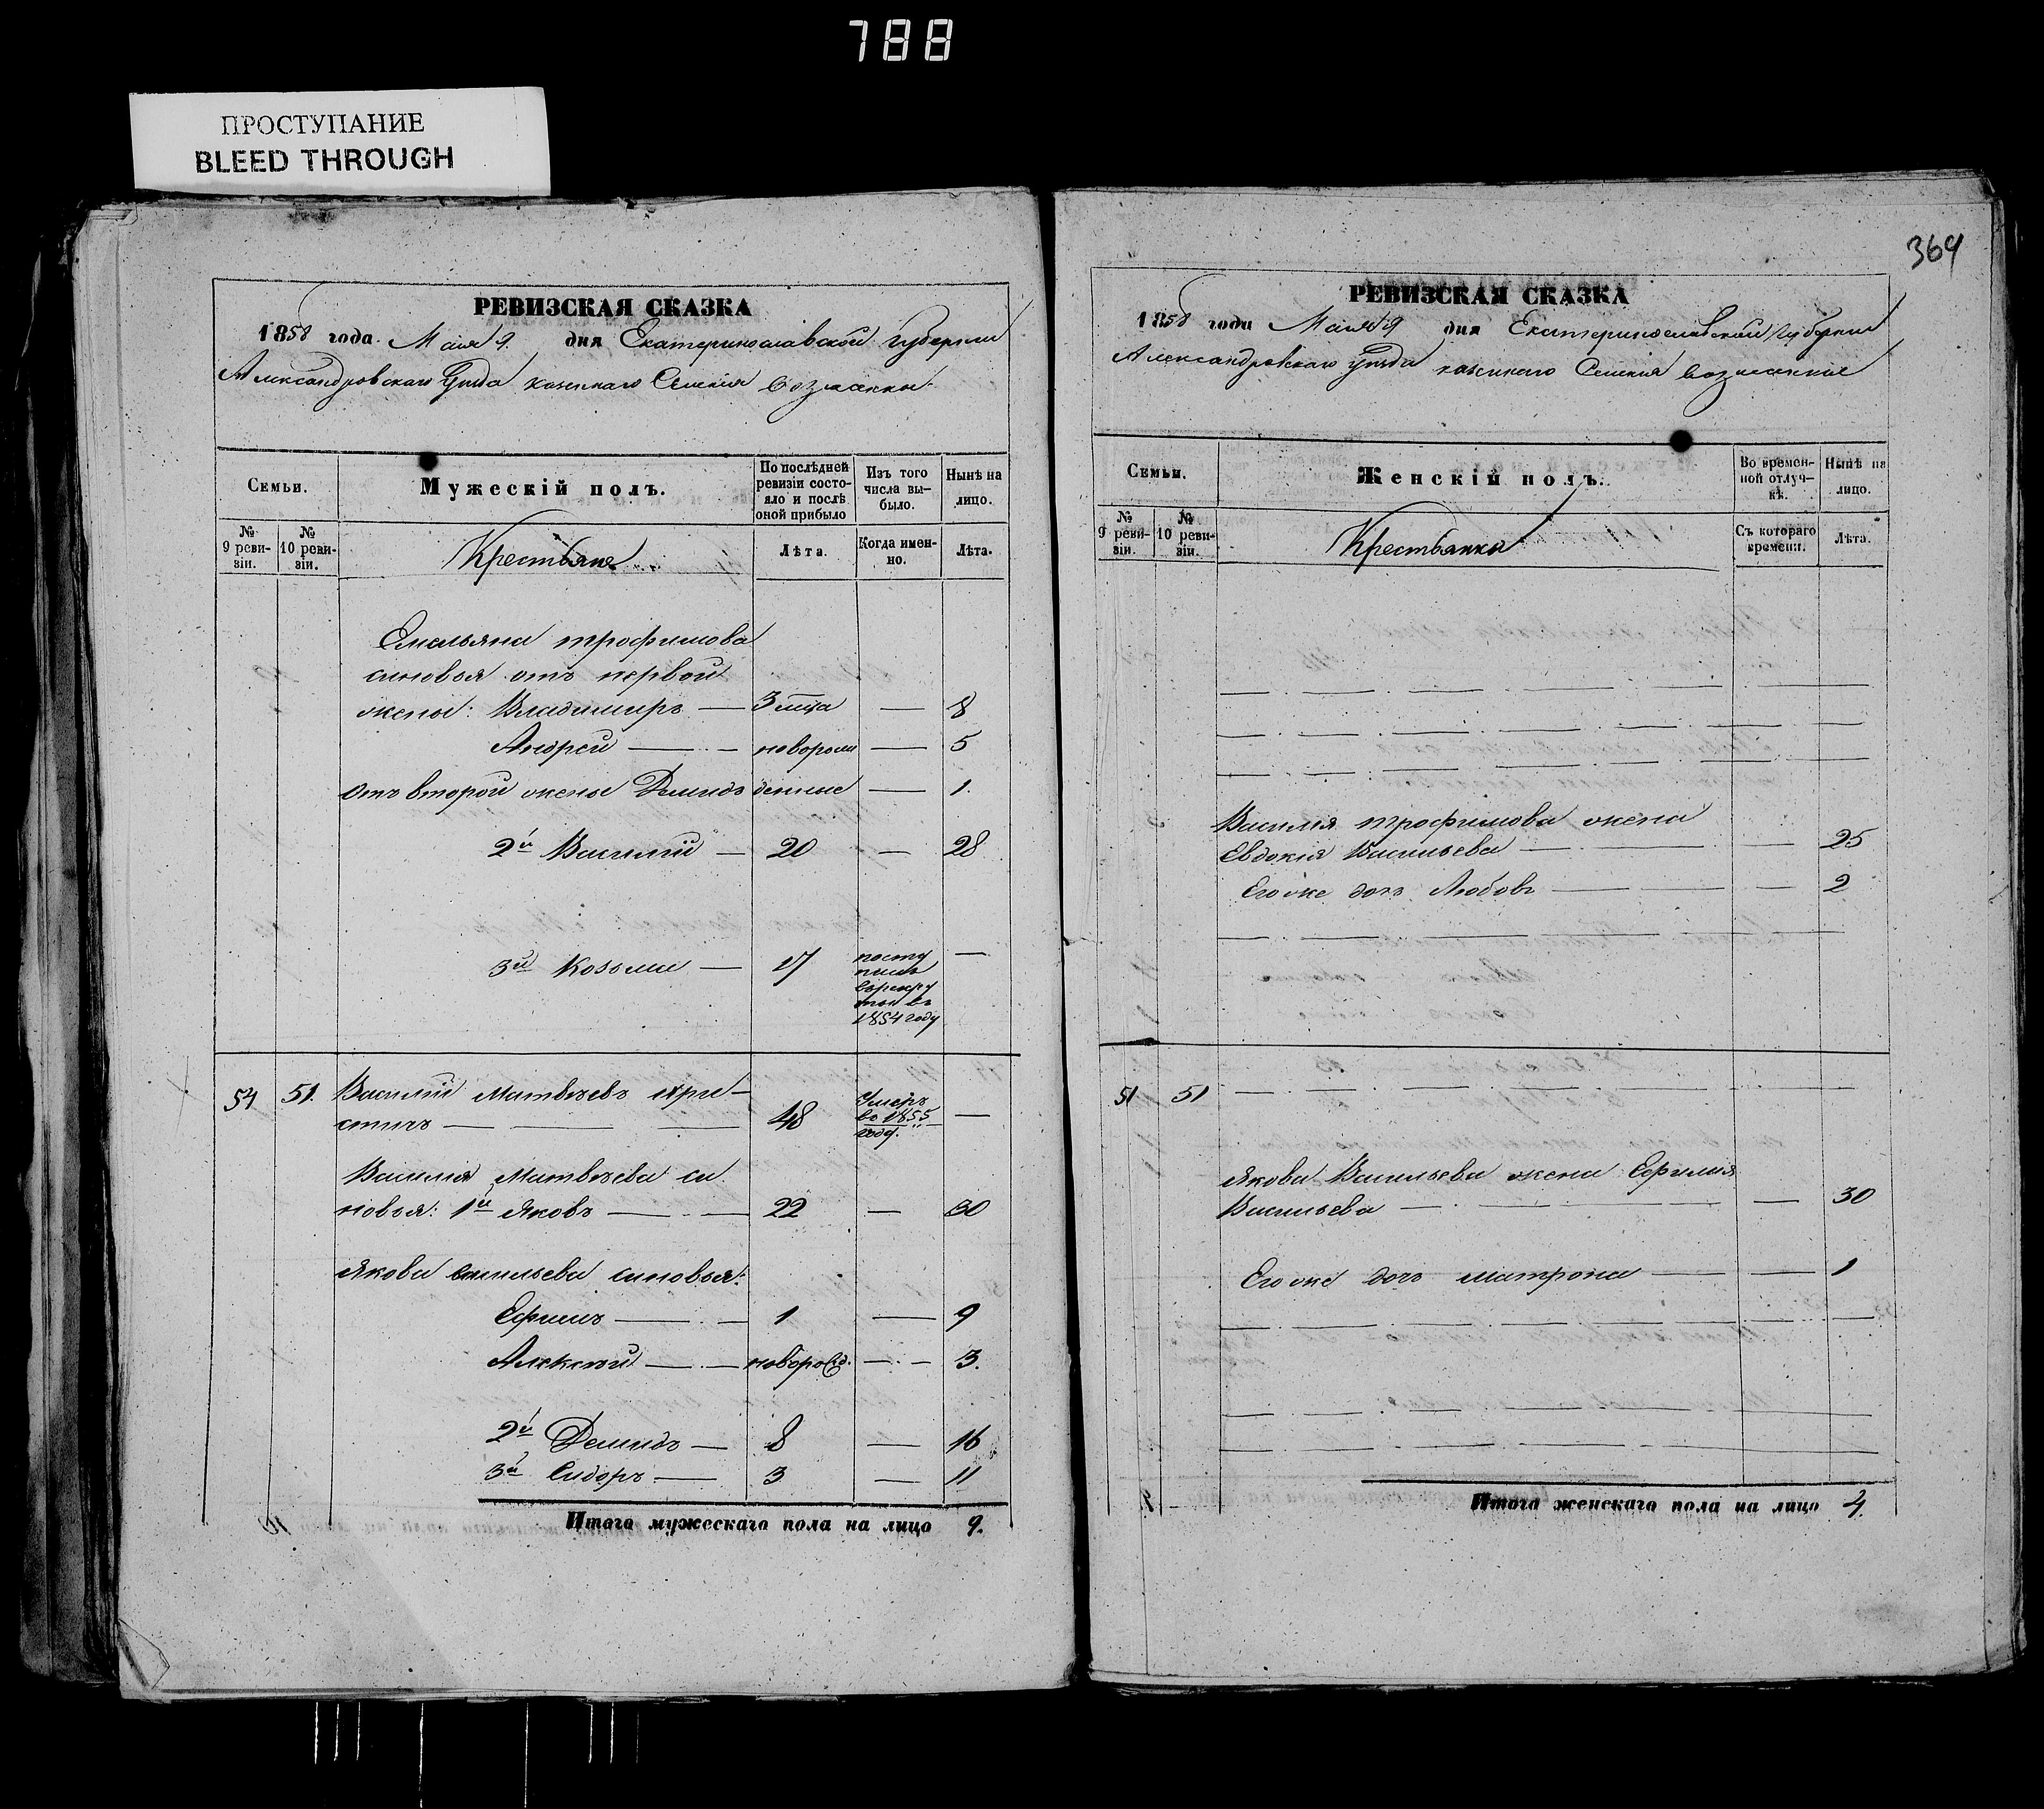 788
ПРОСТУПАНИЕ
BLEED THROUGH
РЕВИЗСКАЯ СКАЗКА
1858 года. Маія 9. дня Екатеринославской губерніи
Александровскаго Уезда казеннаго Селенія
Семьи.
Мужескій полъ.
По послѣдней ревизіи состояло и послѣ оной прибыло
Изъ того числа выбыло.
Нынѣ на лицо.
№ 9 ревизіи.
№ 10 ревизіи.
Крестьяне
Лѣта.
Когда именно.
Лѣта.
Емельяна трофимова
синовья отъ первой
жены: Владимиръ — 3 м̅ца — 8
Андрей — — новорож — 5
отъ второй жены Демидъ денные — 1.
2й Василій — 20 — 28
3й Козьма — 17 посту —
пилъ
в рекру
ты въ
1854 году
54 51. Василій Матвѣевъ хри—
стичъ — — — 48 Умеръ въ 1855 году. —
Василія Матвѣева си
новья: 1й Яковъ — — 22 — 30
Якова васильева синовья:
Ефимъ — — 1 — 9
Алексѣй — — новорожд. — — 3.
2й Демидъ — 8 — 16
3й Сидоръ — 3 — 11
Итого мужескаго пола на лицо 9.
364
РЕВИЗСКАЯ СКАЗКА
1858 года Маія 9 дня Екатеринославской губерніи
Александровскаго уезда казеннаго Селенія
Семьи.
Женскій полъ.
Во временной отлучкѣ.
Нынѣ на лицо.
№ 9 ревизіи.
№ 10 ревизіи.
Крестьянки
Съ котораго времени.
Лѣта.
Василія трофимова жена
Евдокія Васильева — — — 25
Его же дочь Любовь — — — 2
51 51 — — — — — —
Якова Васильева жена Ефимія
Васильева — — — — 30
Его же дочь матрона — — 1
Итого женскаго пола на лицо 4.